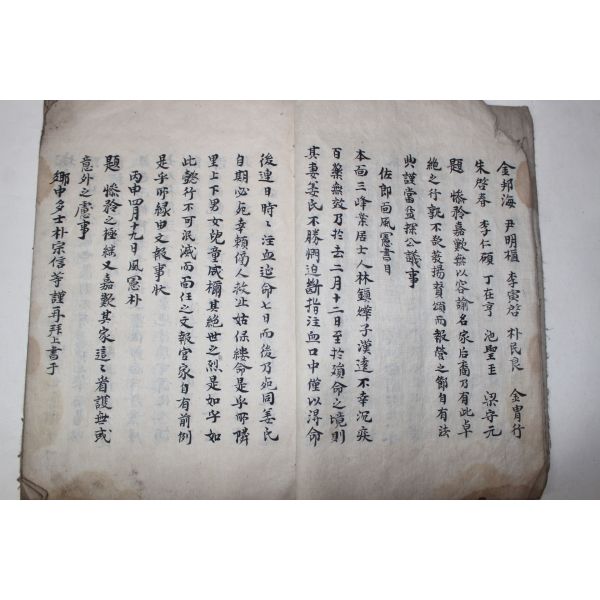 金邦海 尹明樞 李寅啓 朴民良 金胄行
朱啓春 李仁碩 丁在亨 池聖玉 梁守元
題 慘矜嘉歎無以容諭名家后裔乃有此卓
絶之行孰不欲发揚賛頌而報營之節自有法
典謹當益採公議事
佐郎面風憲書目
本面三峰業居士人林鎭燁子漢達不幸沉疾
百藥無效乃於去二月十二日至於殞命之境則
其妻姜氏不勝惘迫斷指注血口中僅以得命
後連日時〻注血追命七日而後乃死同姜氏
自期必死幸賴傍人救止姑保縷命是乎所隣
里上下男女兒童咸稱其絶世之烈是如乎如
此懿行不可泯滅而面任之文報官家自有前例
是乎所緣由文報事狀
丙申四月十九日風憲朴
題 慘矜之極繼又嘉歎其家這〻着護無或
意外之慮事
鄉中多士朴宗信等謹再拜上書于